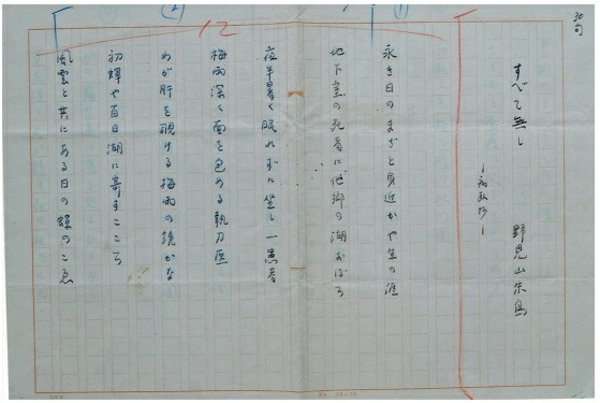 30句
すべて無し 野見山朱鳥
永き日のまざと身近かや生の涯
地下室の死者に他郷の潮おぼろ
夜半暑く眠れずに坐し一患者
梅雨深く面を包める執刀医
わが肝を覗ける梅雨の鏡かな
初蝉や百日潮に寄すこころ
風雲と共にある日の蝉のこゑ
(1)
12
(2)